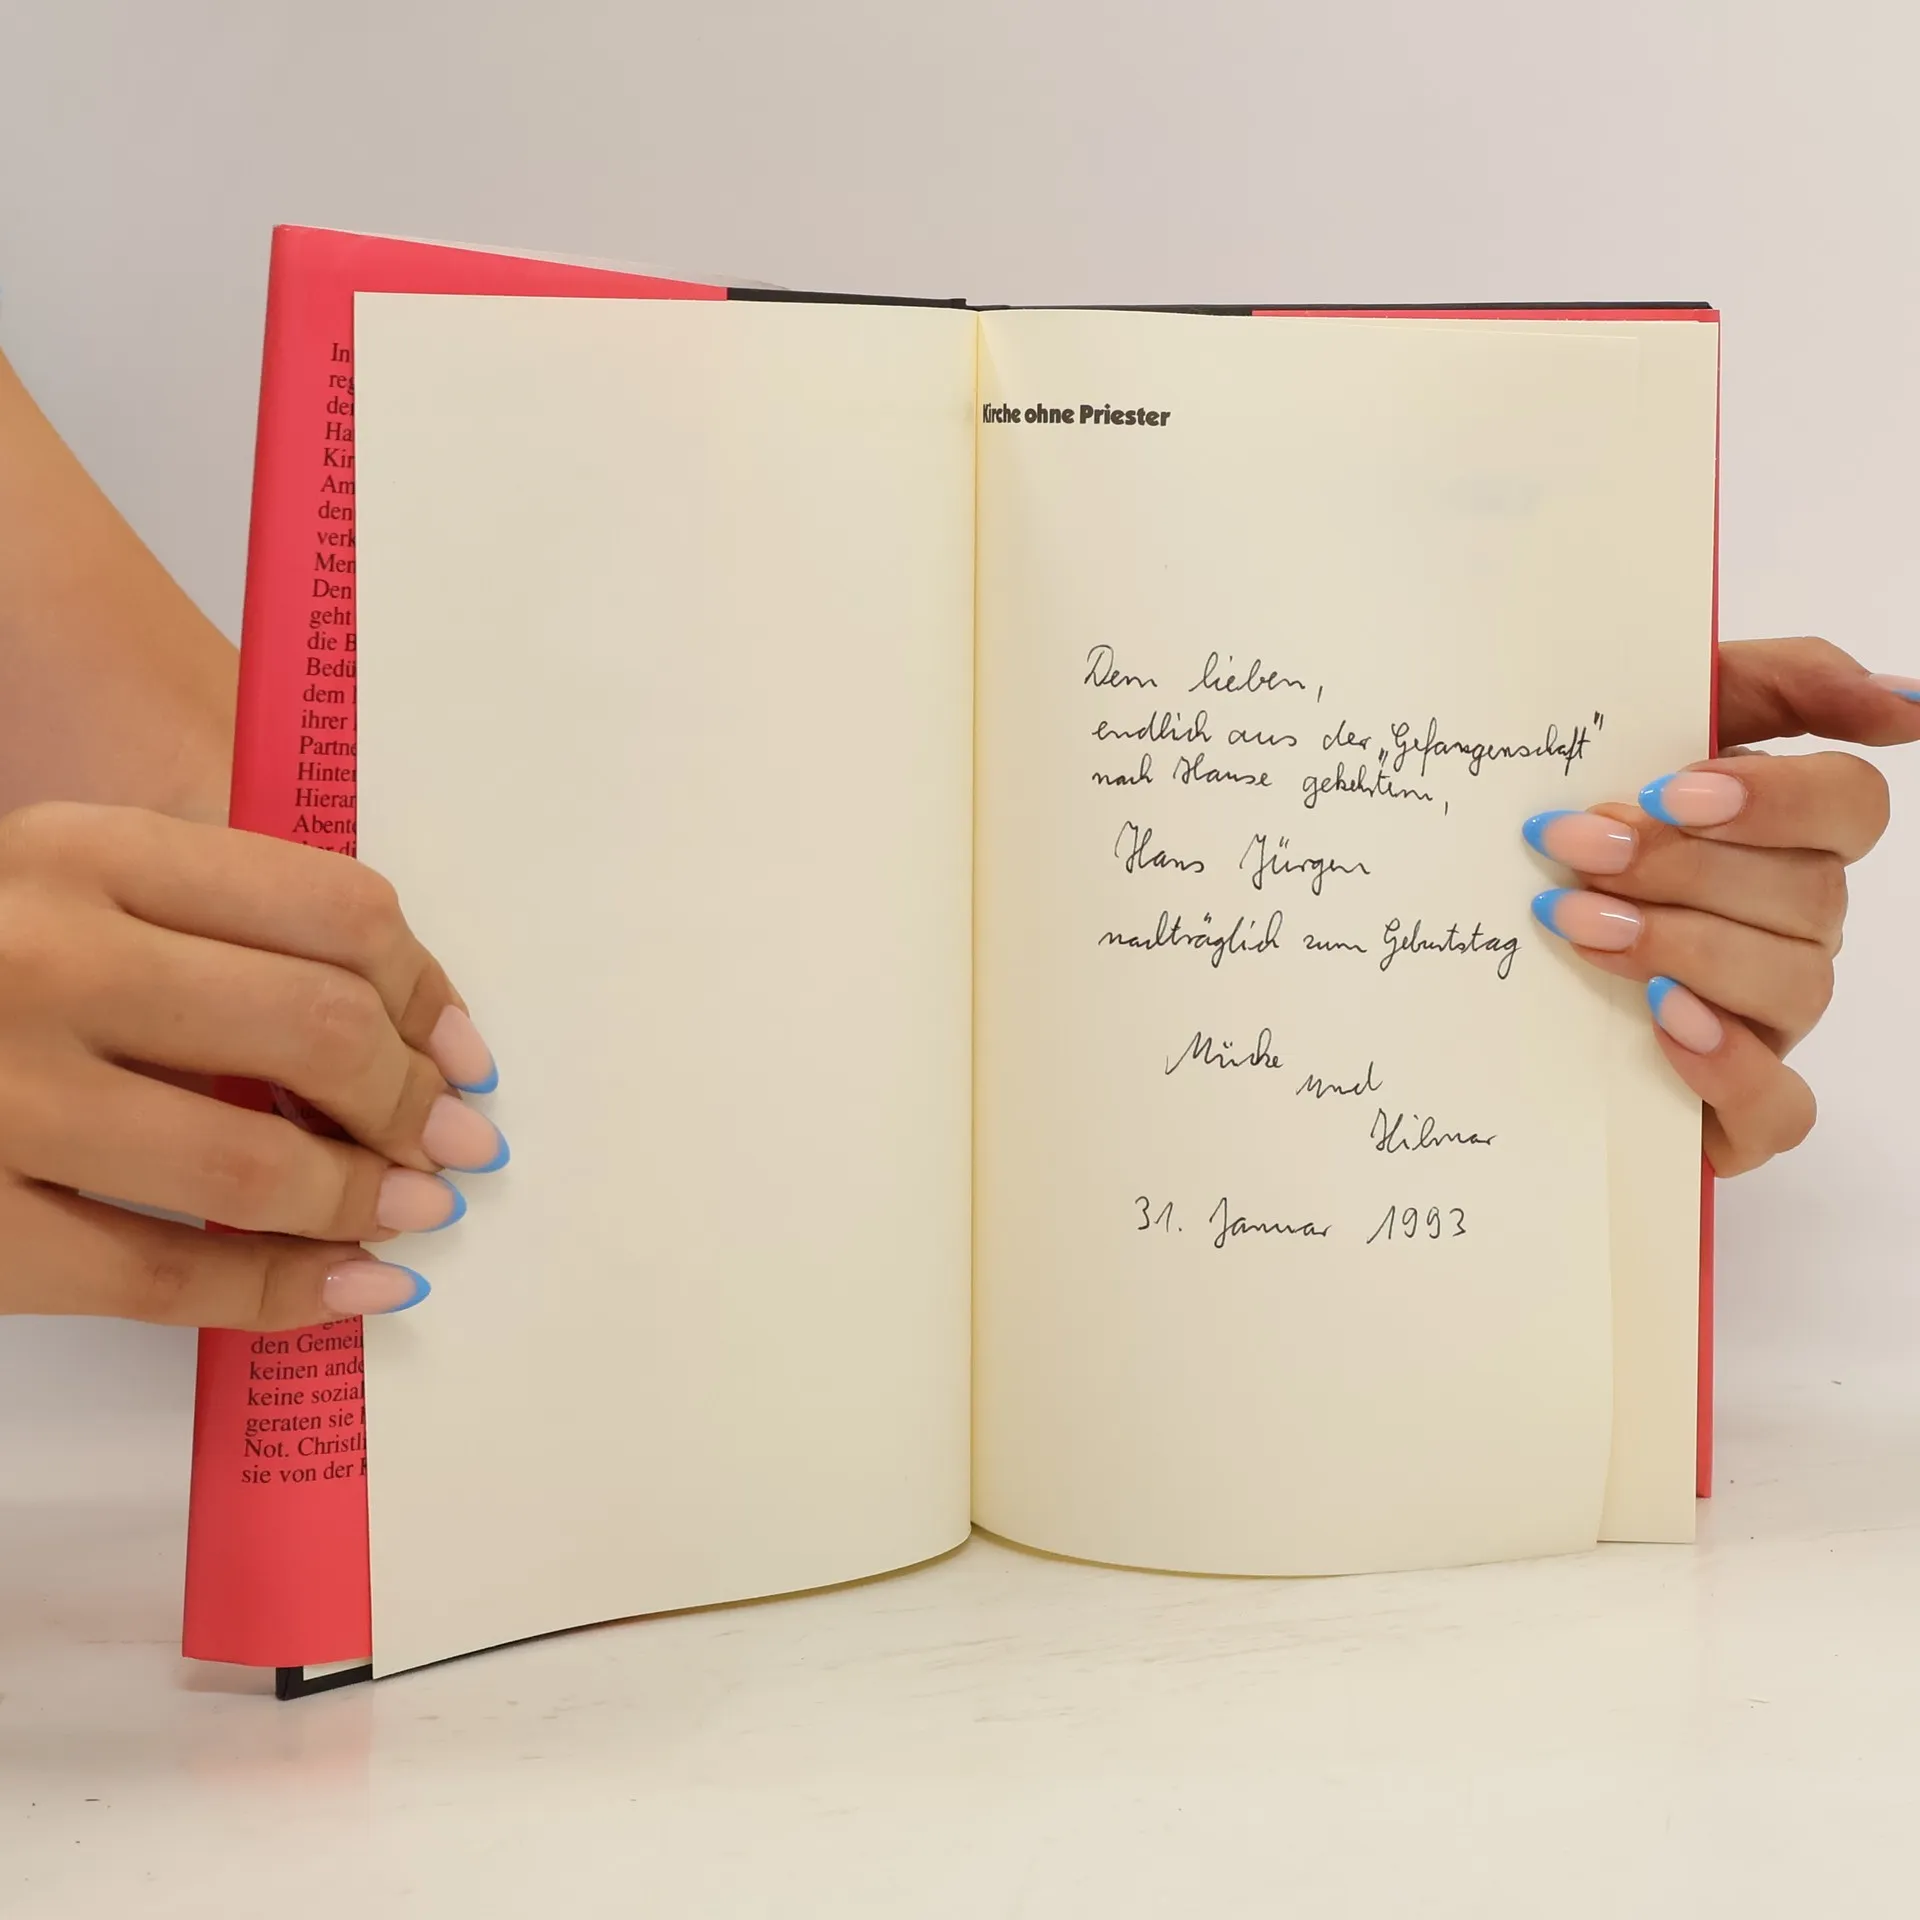 In
reg
der
Ha
Kir
Am
den
verk
Men
Den
geht
die B
Bedü
dem
ihrer
Partne
Hinter
Hierar
Abente
den Gemei
keinen ande
keine sozial
geraten sie
Not. Christli
sie von der
Kirche ohne Priester
Dem lieben,
endlich aus der „Gefangenschaft"
nach Hause gekehrtem,
Hans Jürgen
nachträglich zum Geburtstag
Mücke
und
Hilmar
31. Januar 1993